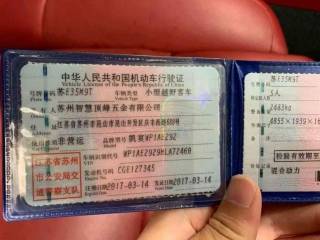 中华人民共和国机动车行驶证
Vehicle License of the People's Republic of China
号牌号码 苏E35M9T 车辆类型 小型越野客车
Plate No. Vehicle Type
所有人 苏州智慧顶峰五金有限公司
Owner
住址
Address
使用性质 非营运 品牌型号 凯宴WP1AE292
Use Character Model
江苏省苏州市公安局交通警察支队
车辆识别代号 WP1AE2929HLA72460
VIN
发动机号码 CGE127345
Engine No.
注册日期 2017-03-14 发证日期 2017-03-14
Register Date Issue Date
苏E35M9T
5人
2483kg
4855×1939×
检验有效期至
混合动力